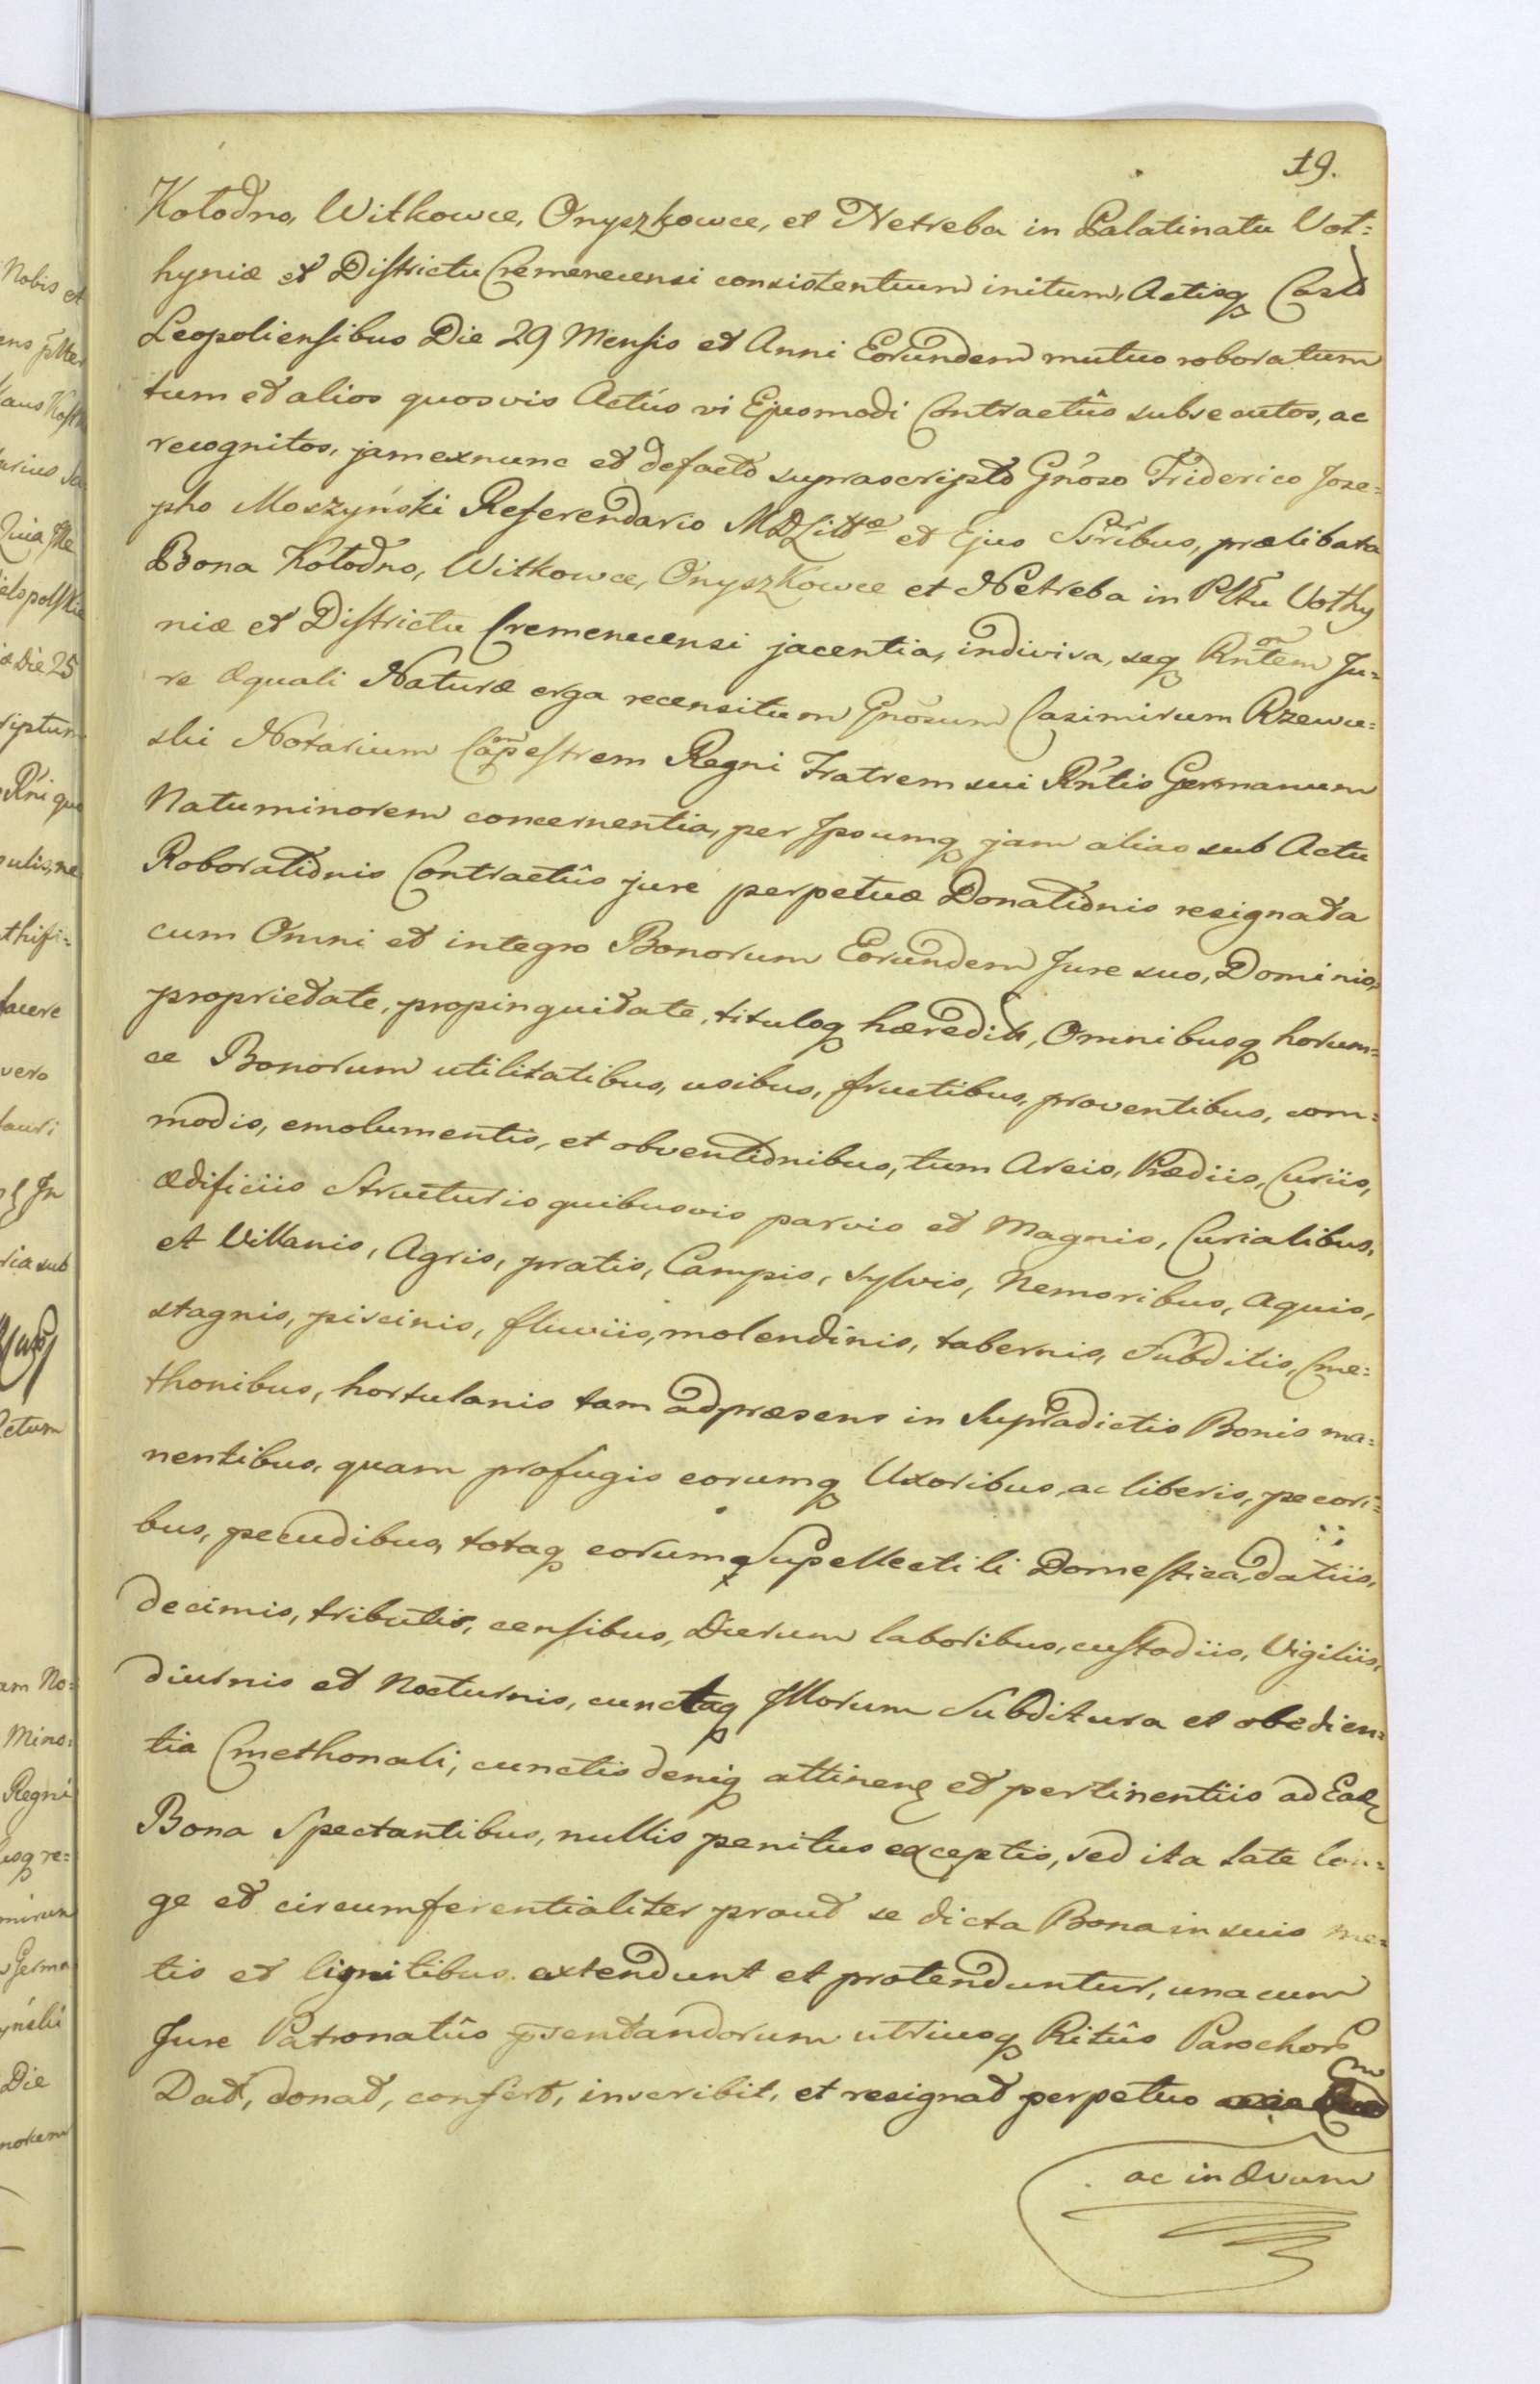 19.
Kołodno, Witkowce, Onyszkowce, et Netreba in Palatinatu Vol=
hyniæ et Districtu Cremenecensi consistentium initum, Actisq Castr
Leopoliensibus Die 29 Mensis et Anni Eorundem mutuo roboratum
tum et alios quosvis Actus vi Ejusmodi Contractûs subsecutos, ac
recognitos, jam exnunc et defacto suprascripto Gnoso Friderico Jose=
pho Moszyński Referendario MDLittæ et Ejus Ssribus, prælibata
Bona Kołodno, Witkowce, Onyszkowce et Netreba in Pltu Volhy
niæ et Districtu Cremenecensi jacentia, indivisa, seq Rntem Ju=
re Æquali Naturæ erga recensitum Gnosum Casimirum Rzewu=
ski Notarium Campestrem Regni Fratrem sui Rntis Germanum
Natuminorem concernentia, per Ipsumq jam alias sub Actu
Roborationis Contractûs jure perpetuæ Donationis resignata
cum Omni et integro Bonorum Eorundem Jure suo, Dominio,
proprietate, propinquitate, tituloq hæredit, Omnibusq horum=
ce Bonorum utilitatibus, usibus, fructibus, proventibus, com=
modis, emolumentis, et obventionibus, tum Areis, Prædiis, Curiis,
ædificiis Structuris quibusvis parvis et Magnis, Curialibus,
et Villanis, Agris, pratis, Campis, sylvis, Nemoribus, Aquis,
stagnis, piscinis, fluviis, molendinis, tabernis, Subditis, Cme=
thonibus, hortulanis tam adpræsens in Supradictis Bonis ma=
nentibus, quam profugis eorumq Uxoribus, ac liberis, pecori=
bus, pecudibus, totaq eorumq Supellectili Domestica, datiis,
decimis, tributis, censibus, Dierum laboribus, custodiis, Vigiliis,
diurnis et Nocturnis, cunctaq Illorum Subditura et obedien=
tia Cmethonali, cunctis deniq attinen et pertinentiis ad Ead
Bona Spectantibus, nullis penitus exceptis, sed ita late lon=
ge et circumferentialiter prout se dicta Bona in suis me=
tis et limitibus extendunt et protenduntur, una cum
Jure Patronatûs psentandorum utriusq Ritûs Parochor
Dat, donat, confert, inscribit, et resignat perpetuo
ac in Ævum